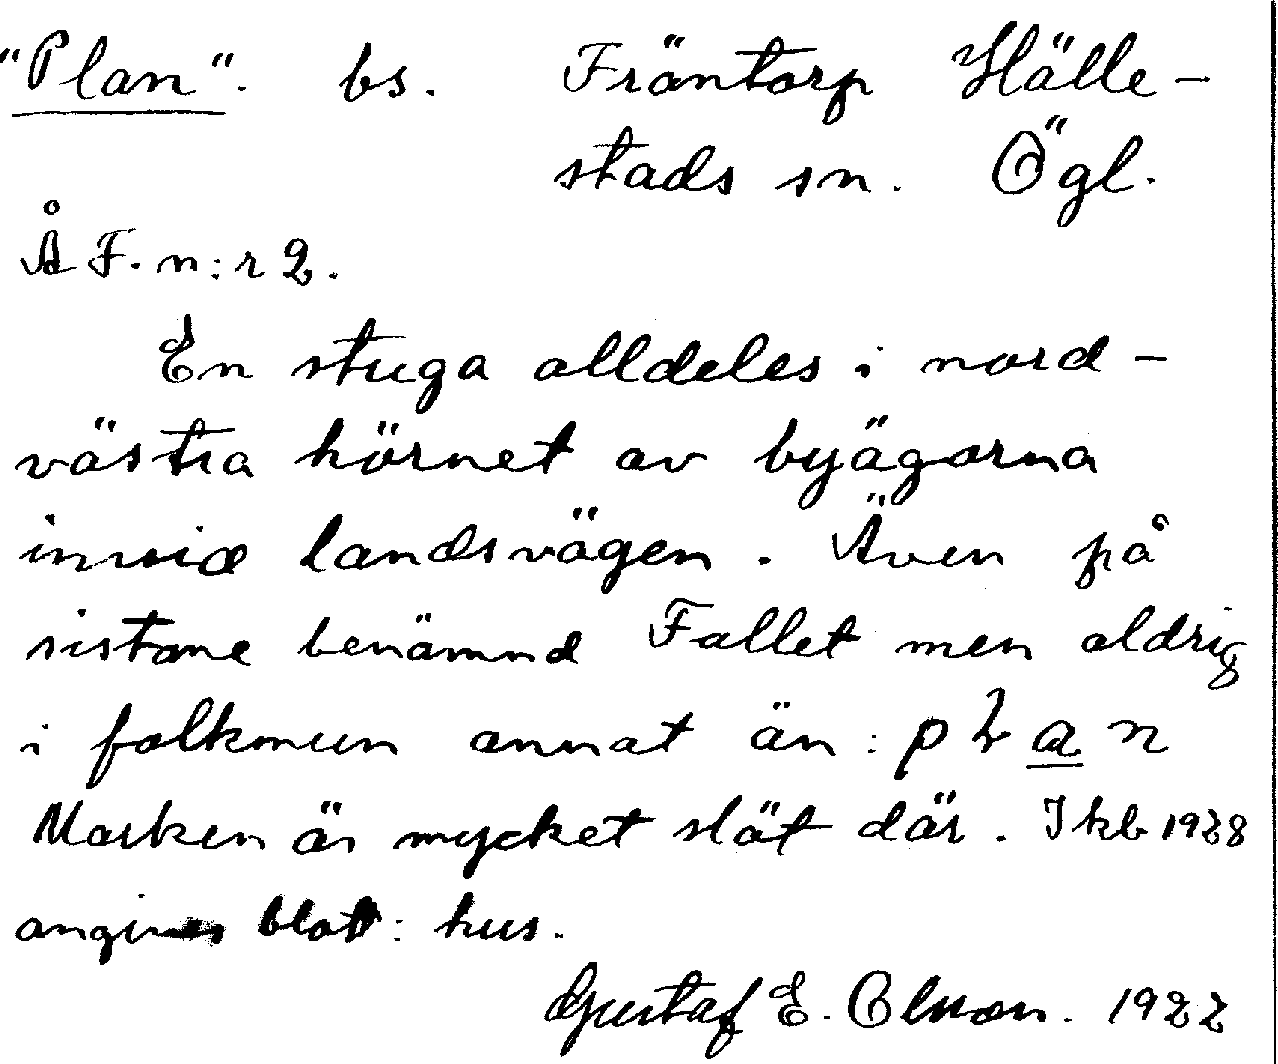 "Plan". bs. Fräntorp Hälle-
stads sn. Ögl.
ÅF. n:r 2.
En stuga alldeles i nord-
västra hörnet av byägorna
invid landsvägen. Även på
sistone benämnd Fallet men aldrig
i folkmun annat än: plan
Marken är mycket slät där. I kb 1928
angives blott: hus.
Gustaf E. Olsson. 1922